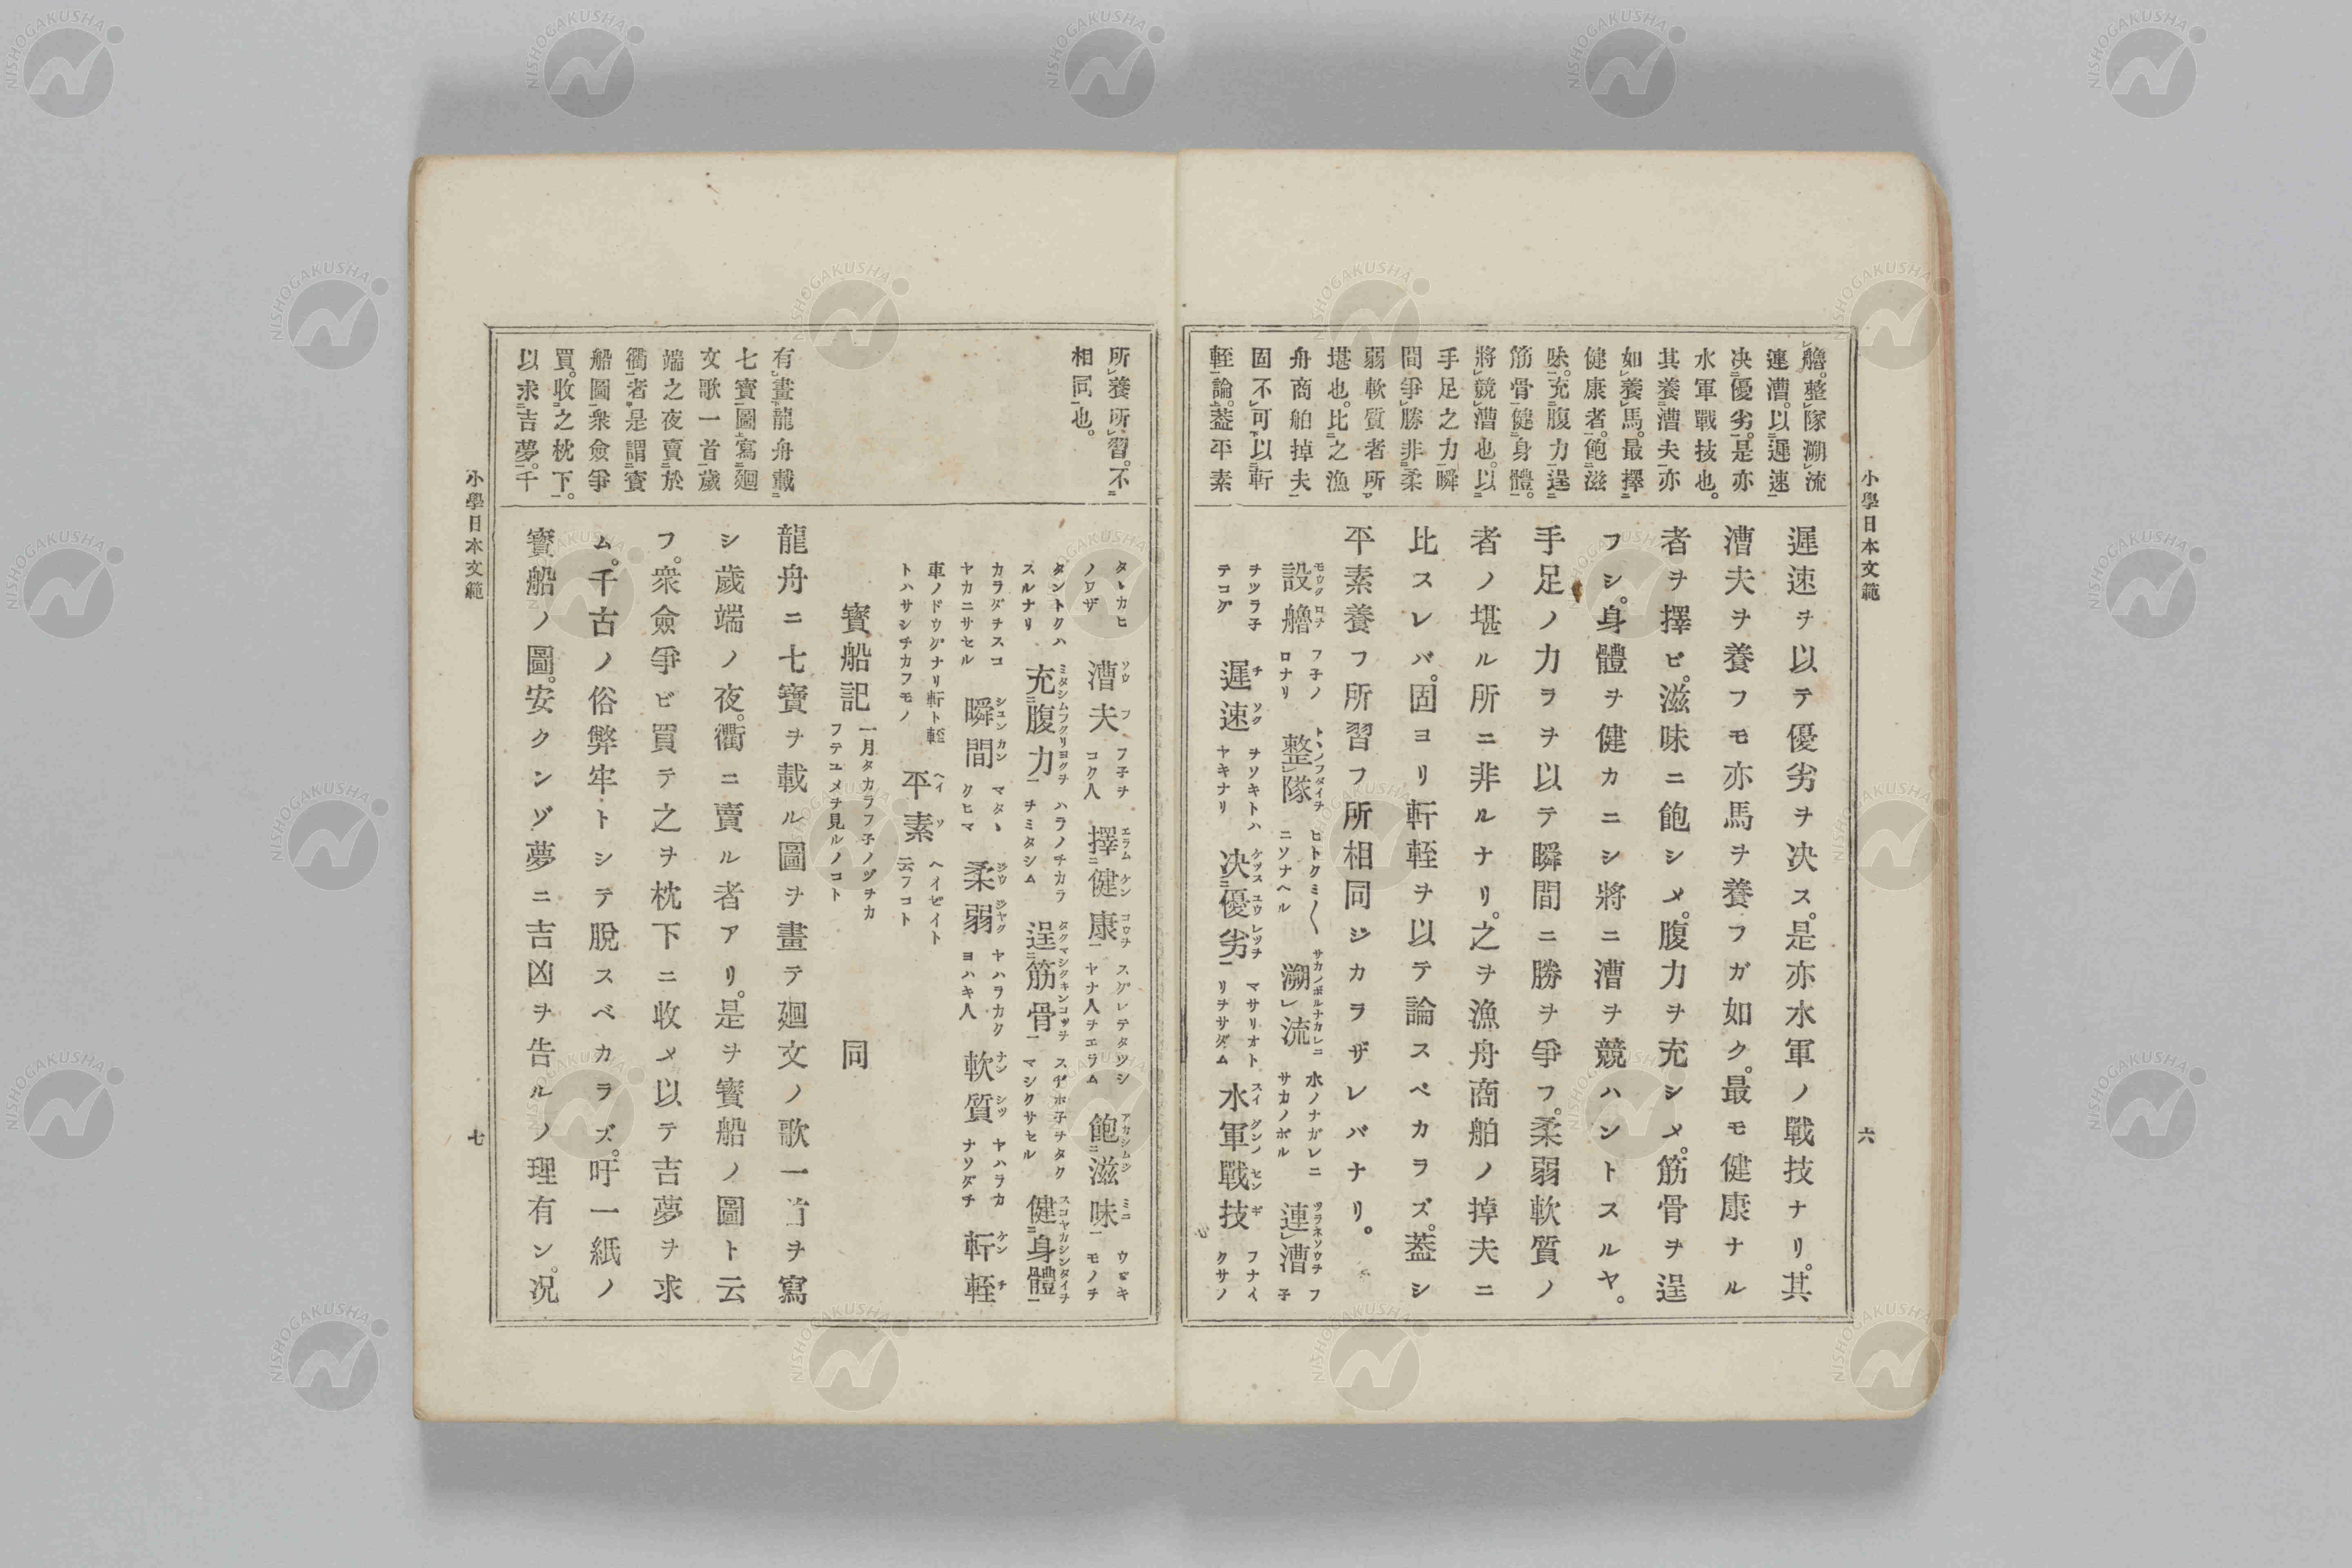 小學日本文範
六
艪。整隊溯流
連漕。以遲速
决優劣。是亦
水軍戰技也。
其養漕夫亦
如養馬。最擇
健康者。飽滋
味。充腹力逞
筋骨健身體。
將競漕也。以
手足之力瞬
間爭勝非柔
弱軟質者所
堪也。比之漁
舟商舶掉夫
固不可以軒
輊論。葢平素
遲速ヲ以テ優劣ヲ决ス。是亦水軍ノ戰技ナリ。其
漕夫ヲ養フモ亦馬ヲ養フガ如ク。最モ健康ナル
者ヲ擇ビ。滋味ニ飽シメ。腹力ヲ充シメ。筋骨ヲ逞
フシ。身體ヲ健カニシ將ニ漕ヲ競ハントスルヤ。
手足ノ力ヲヲ以テ瞬間ニ勝ヲ爭フ。柔弱軟質ノ
者ノ堪ル所ニ非ルナリ。之ヲ漁舟商舶ノ掉夫ニ
比スレバ。固ヨリ軒輊ヲ以テ論スベカラズ。葢シ
平素養フ所習フ所相同ジカラザレバナリ。
設艪 フ子ノロナリ 整隊 ヒトクミ〱ニソナヘル 溯流 水ノナガレニサカノボル 連漕 フ子
ヲツラ子テコグ 遲速 ヲソキトハヤキナリ 决優劣 マサリオトリヲサダム 水軍戰技 フナイクサノ
所養所習。不
相同也。
有畫龍舟載
七寶圖寫廻
文歌一首歲
端之夜賣於
衢者是謂寶
船圖衆僉爭
買。收之枕下。
以求吉夢。千
タヽカヒノワザ 漕夫 フ子ヲコグ人 擇健康 スグレテタツシヤナ人ヲエラム 飽滋味 ウマキモノヲ
タントクハスルナリ 充腹力 ハラノチカラヲミタシム 逞筋骨 スヂホ子ヲタクマシクサセル 健身體
カラダヲスコヤカニサセル 瞬間 マタヽクヒマ 柔弱 ヤハラカクヨハキ人 軟質 ヤハラカナソダチ 軒輊
車ノドウグナリ軒ト輊トハサシチカフモノ 平素 ヘイゼイト云フコト
寶船記 一月タカラフ子ノヅヲカフテユメヲ見ルノコト 同
龍舟ニ七寶ヲ載ル圖ヲ畫テ廻文ノ歌一首ヲ寫
シ歲端ノ夜。衢ニ賣ル者アリ。是ヲ寶船ノ圖ト云
フ。衆僉爭ビ買テ之ヲ枕下ニ收メ以テ吉夢ヲ求
ム。千古ノ俗弊牢トシテ脫スベカラズ。吁一紙ノ
寶船ノ圖。安クンゾ夢ニ吉凶ヲ告ルノ理有ン。况
小學日本文範
七